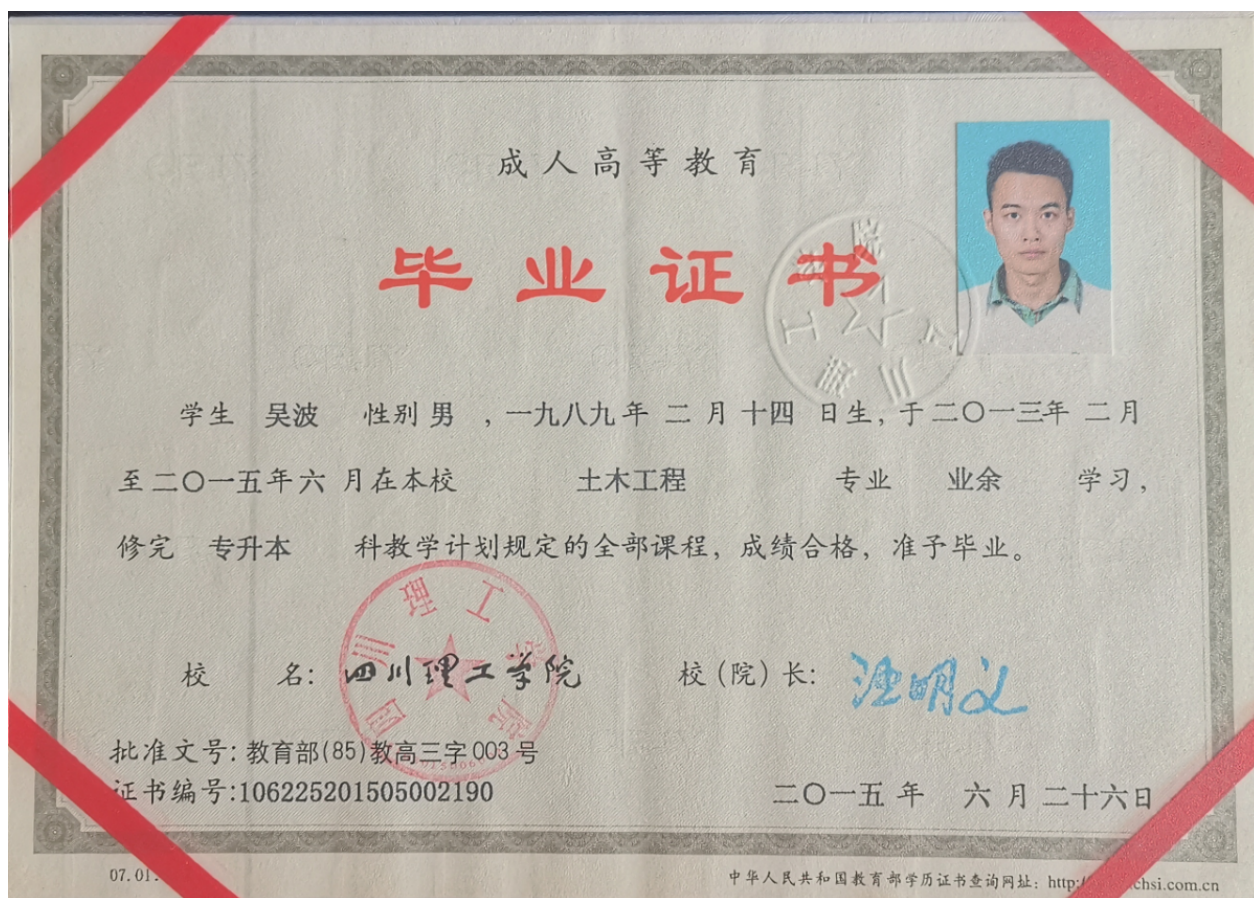 成人高等教育
毕业证书
学生 吴波 性别 男 ，一九八九年 二 月 十四 日生，于二〇一三年 二月
至二〇一五年六 月在本校 土木工程 专业 业余 学习，
修完 专升本 科教学计划规定的全部课程，成绩合格，准予毕业。
校 名：四川理工学院 校（院）长：
批准文号：教育部(85)教高三字003号
证书编号:106225201505002190 二〇一五年 六月二十六日
07.01.
中华人民共和国教育部学历证书查询网址：http:/ chsi.com.cn
四川理工学院
四川理工学院